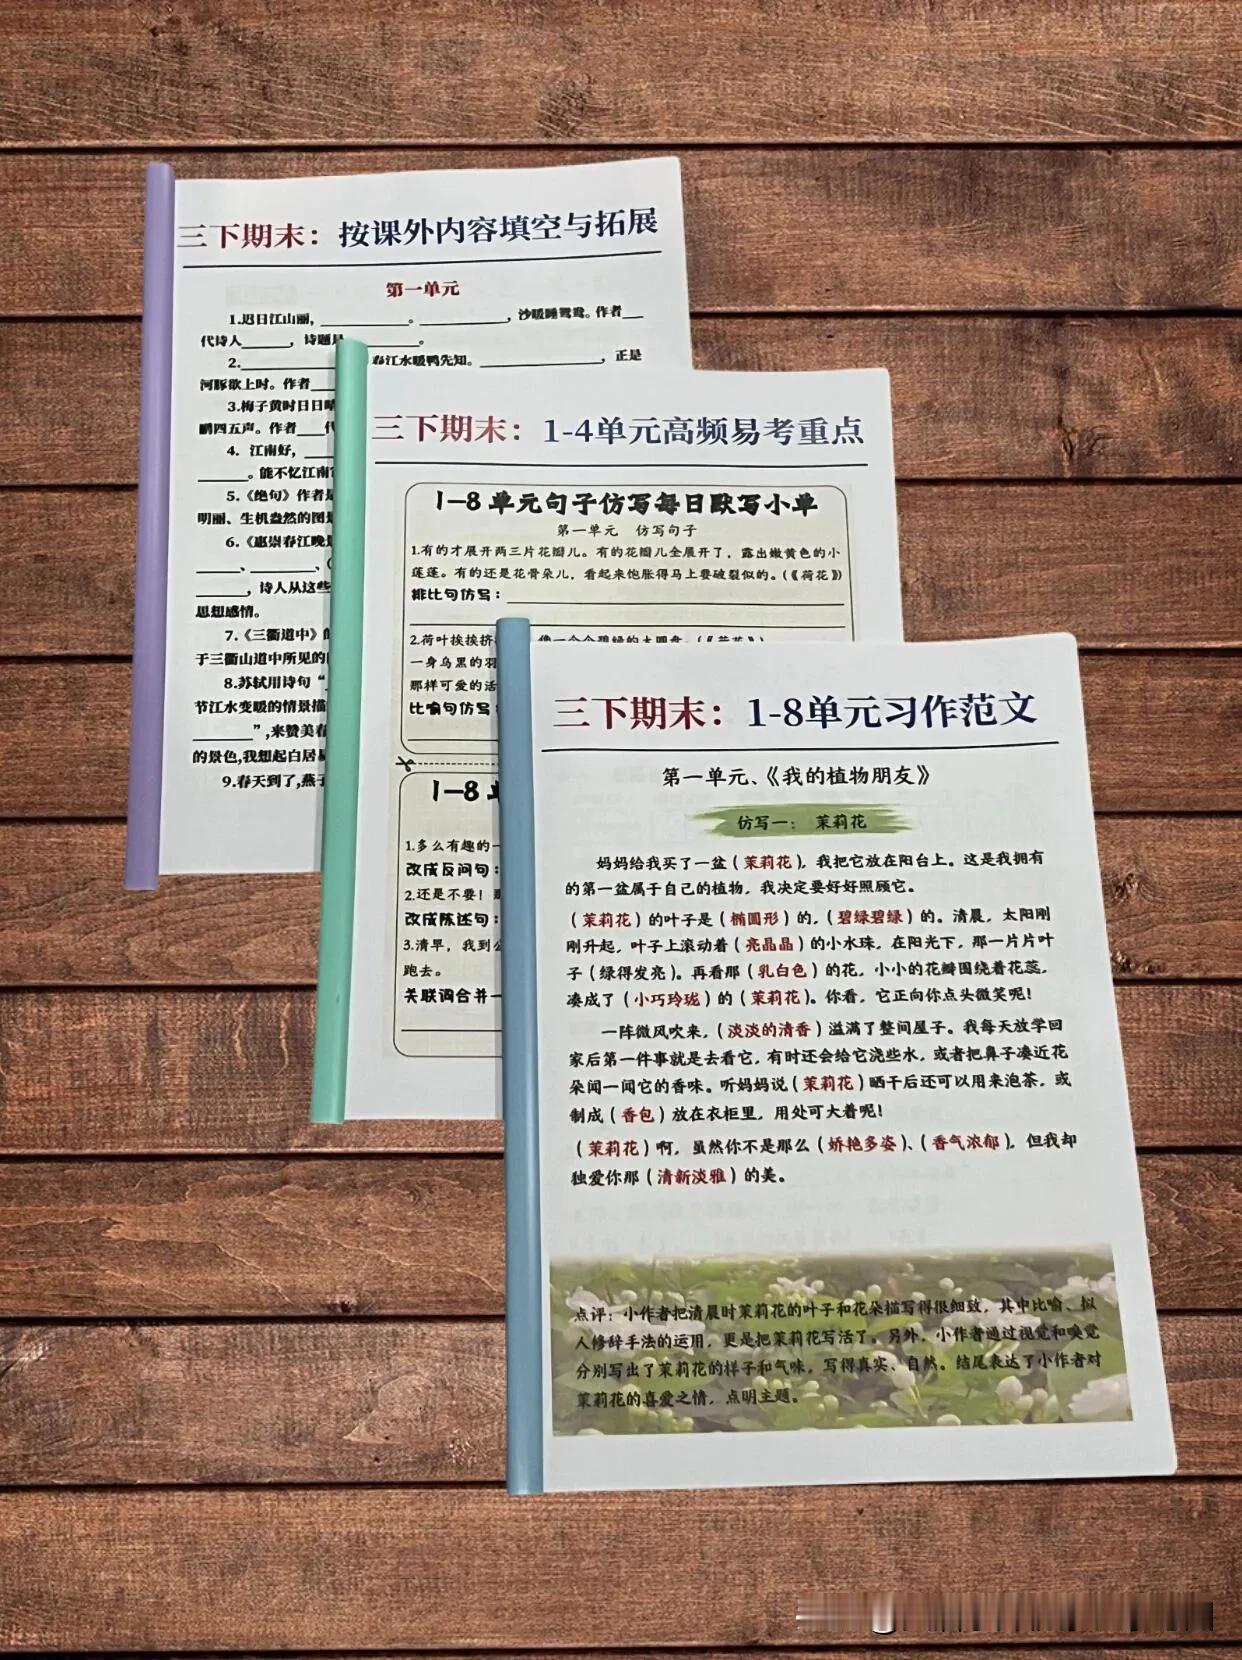 三下期末：按课外内容填空与拓展
第一单元
1.迟日江山丽，________。________，沙暖睡鸳鸯。作者__
代诗人______，诗题是________。
2.________春江水暖鸭先知。________，正是
河豚欲上时。作者
3.梅子黄时日日晴
鹂四五声。作者___代
4. 江南好，
______。能不忆江南
5.《绝句》作者是
明丽、生机盎然的图景
6.《惠崇春江晚景
______、________、（
______，诗人从这些
思想感情。
7.《三衢道中》的
于三衢山道中所见的
8.苏轼用诗句“
节江水变暖的情景描
________”,来赞美春
的景色,我想起白居易
9.春天到了,燕子
三下期末：1-4单元高频易考重点
1-8单元句子仿写每日默写小单
第一单元 仿写句子
1.有的才展开两三片花瓣儿。有的花瓣儿全展开了，露出嫩黄色的小
莲蓬。有的还是花骨朵儿，看起来饱胀得马上要破裂似的。(《荷花》)
排比句仿写：
2.荷叶挨挨挤 像一个个碧绿的大圆盘。(《荷花》)
一身乌黑的羽
那样可爱的活
比喻句仿写：
1-8单
1.多么有趣的一
改成反问句：
2.还是不要！那
改成陈述句：
3.清早，我到公
跑去。
关联词合并一
三下期末：1-8单元习作范文
第一单元、《我的植物朋友》
仿写一： 茉莉花
妈妈给我买了一盆（茉莉花），我把它放在阳台上。这是我拥有
的第一盆属于自己的植物，我决定要好好照顾它。
（茉莉花）的叶子是（椭圆形）的，（碧绿碧绿）的。清晨，太阳刚
刚升起，叶子上滚动着（亮晶晶）的小水珠，在阳光下，那一片片叶
子（绿得发亮）。再看那（乳白色）的花，小小的花瓣围绕着花蕊，
凑成了（小巧玲珑）的（茉莉花）。你看，它正向你点头微笑呢！
一阵微风吹来，（淡淡的清香）溢满了整间屋子。我每天放学回
家后第一件事就是去看它，有时还会给它浇些水，或者把鼻子凑近花
朵闻一闻它的香味。听妈妈说（茉莉花）晒干后还可以用来泡茶，或
制成（香包）放在衣柜里，用处可大着呢！
（茉莉花）啊，虽然你不是那么（娇艳多姿）、（香气浓郁），但我却
独爱你那（清新淡雅）的美。
点评：小作者把清晨时茉莉花的叶子和花朵描写得很细致，其中比喻、拟
人修辞手法的运用，更是把茉莉花写活了。另外，小作者通过视觉和嗅觉
分别写出了茉莉花的样子和气味，写得真实、自然。结尾表达了小作者对
茉莉花的喜爱之情，点明主题。